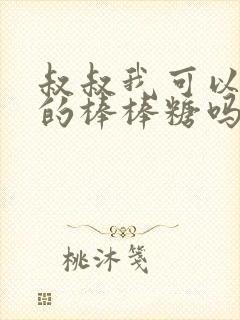 叔叔我可以
的棒棒糖吗
桃沐笺